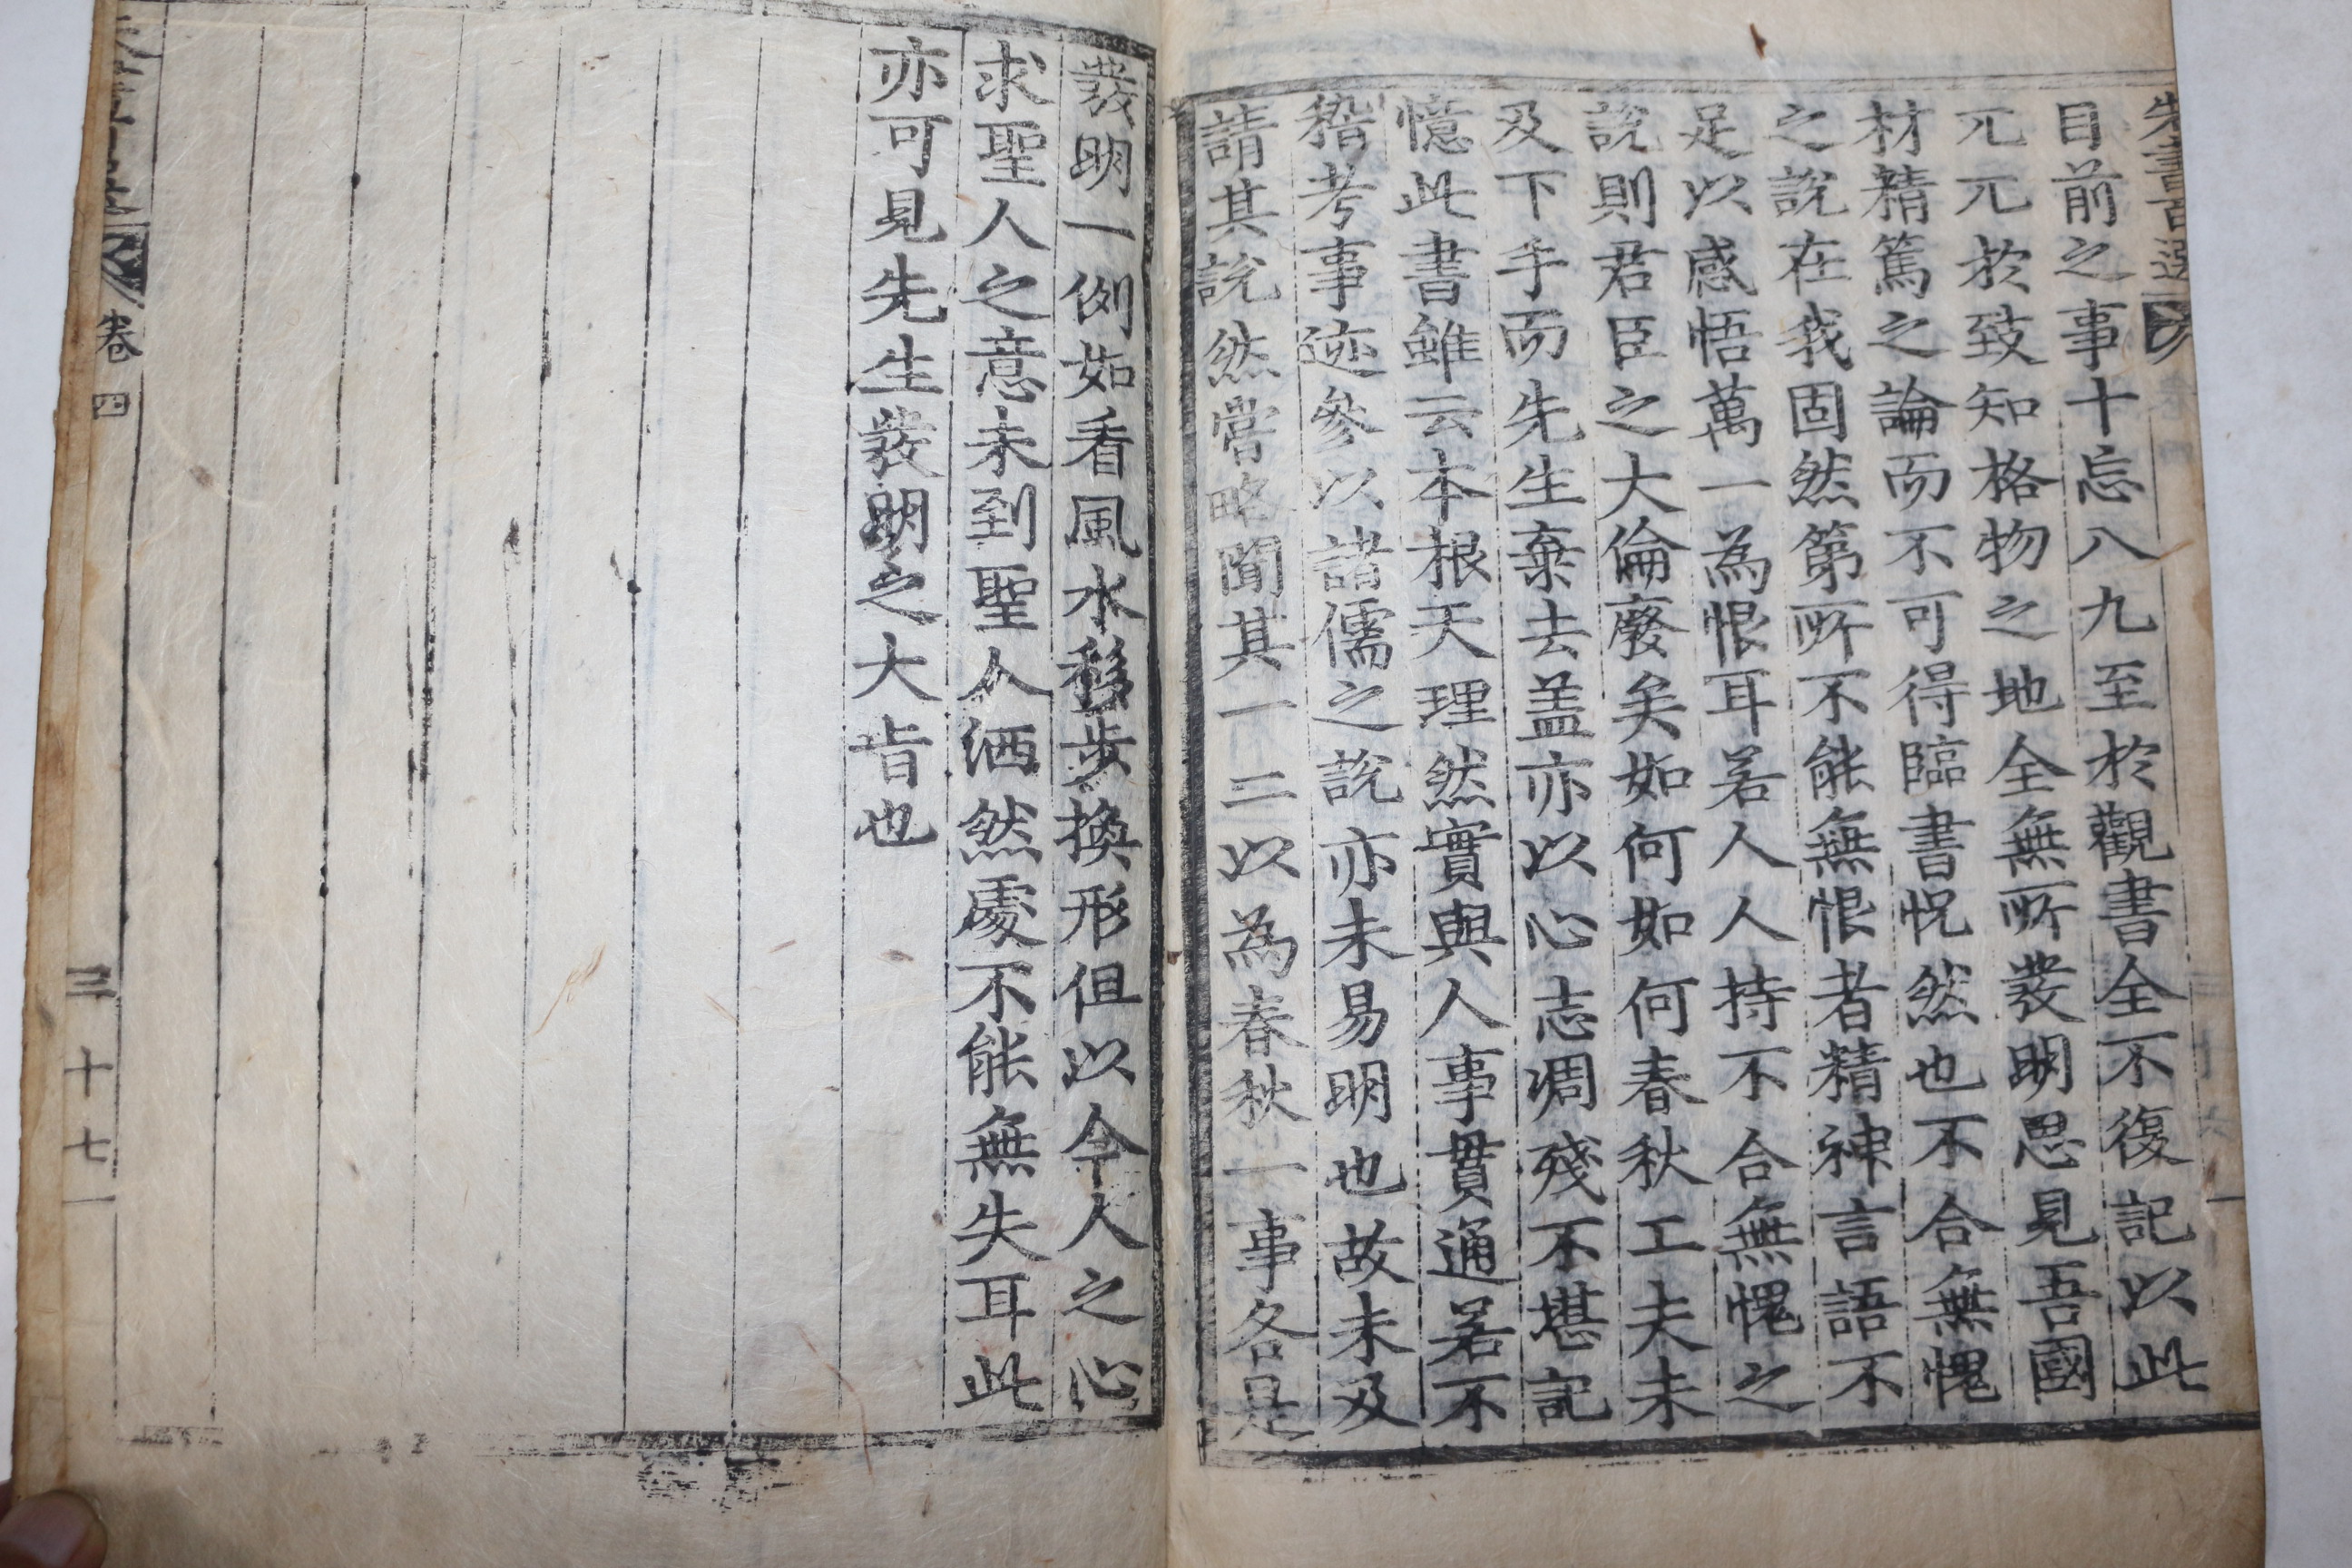 朱書百選
目前之事十忘八九至於觀書全不復記以此
兀兀於致知格物之地全無所發明思見吾國
材精篤之論而不可得臨書怳然也不合無愧
之說在我固然第所不能無恨者精神言語不
足以感悟萬一為恨耳若人人持不合無愧之
說則君臣之大倫廢矣如何如何春秋工夫未
及下手而先生棄去盖亦以心志凋殘不堪記
憶此書雖云本根天理然實與人事貫通若不
稽考事迹參以諸儒之說亦未易明也故未及
請其說然嘗略聞其一二以為春秋一事各是
發明一例如看風水移步換形但以今人之心
求聖人之意未到聖人洒然處不能無失耳此
亦可見先生發明之大旨也
卷四
三十七